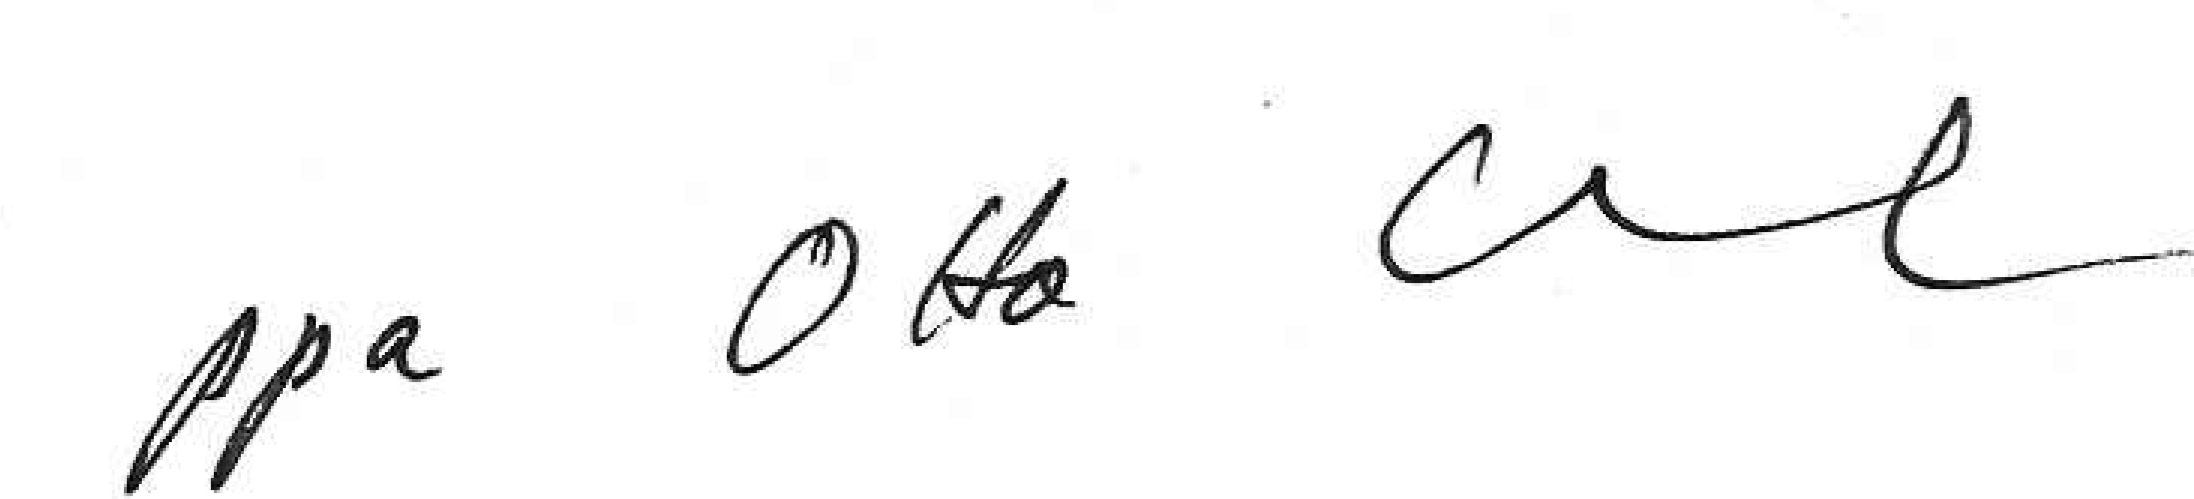 ppa Otto